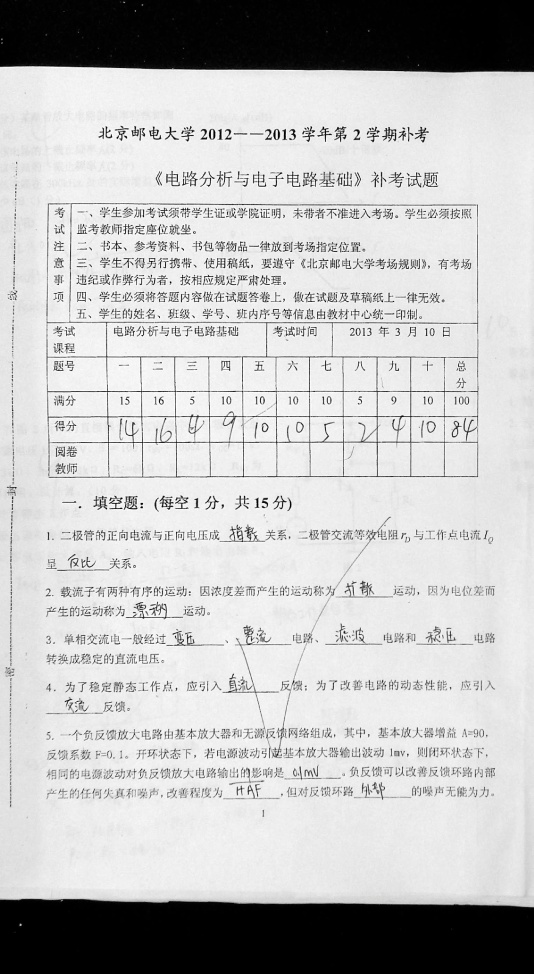 北京邮电大学 2012——2013 学年第 2 学期补考
《电路分析与电子电路基础》补考试题
考试注意事项
一、学生参加考试须带学生证或学院证明，未带者不准进入考场。学生必须按照
监考教师指定座位就坐。
二、书本、参考资料、书包等物品一律放到考场指定位置。
三、学生不得另行携带、使用稿纸，要遵守《北京邮电大学考场规则》，有考场
违纪或作弊行为者，按相应规定严肃处理。
四、学生必须将答题内容做在试题答卷上，做在试题及草稿纸上一律无效。
五、学生的姓名、班级、学号、班内序号等信息由教材中心统一印制。
考试课程 电路分析与电子电路基础 考试时间 2013 年 3 月 10 日
题号 一 二 三 四 五 六 七 八 九 十 总分
满分 15 16 5 10 10 10 10 5 9 10 100
得分 14 16 4 9 10 10 5 2 4 10 84
阅卷教师
一．填空题：(每空 1 分，共 15 分)
1. 二极管的正向电流与正向电压成 指数 关系，二极管交流等效电阻 rD 与工作点电流 IQ
呈 反比 关系。
2. 载流子有两种有序的运动：因浓度差而产生的运动称为 扩散 运动，因为电位差而
产生的运动称为 漂移 运动。
3. 单相交流电一般经过 变压 、 整流 电路、 滤波 电路和 稳压 电路
转换成稳定的直流电压。
4. 为了稳定静态工作点，应引入 直流 反馈；为了改善电路的动态性能，应引入
交流 反馈。
5. 一个负反馈放大电路由基本放大器和无源反馈网络组成，其中，基本放大器增益 A=90,
反馈系数 F=0.1。开环状态下，若电源波动引起基本放大器输出波动 1mv，则闭环状态下，
相同的电源波动对负反馈放大电路输出的影响是 0.1mV 。负反馈可以改善反馈环路内部
产生的任何失真和噪声，改善程度为 1+AF ，但对反馈环路 外部 的噪声无能为力。
1
密
封